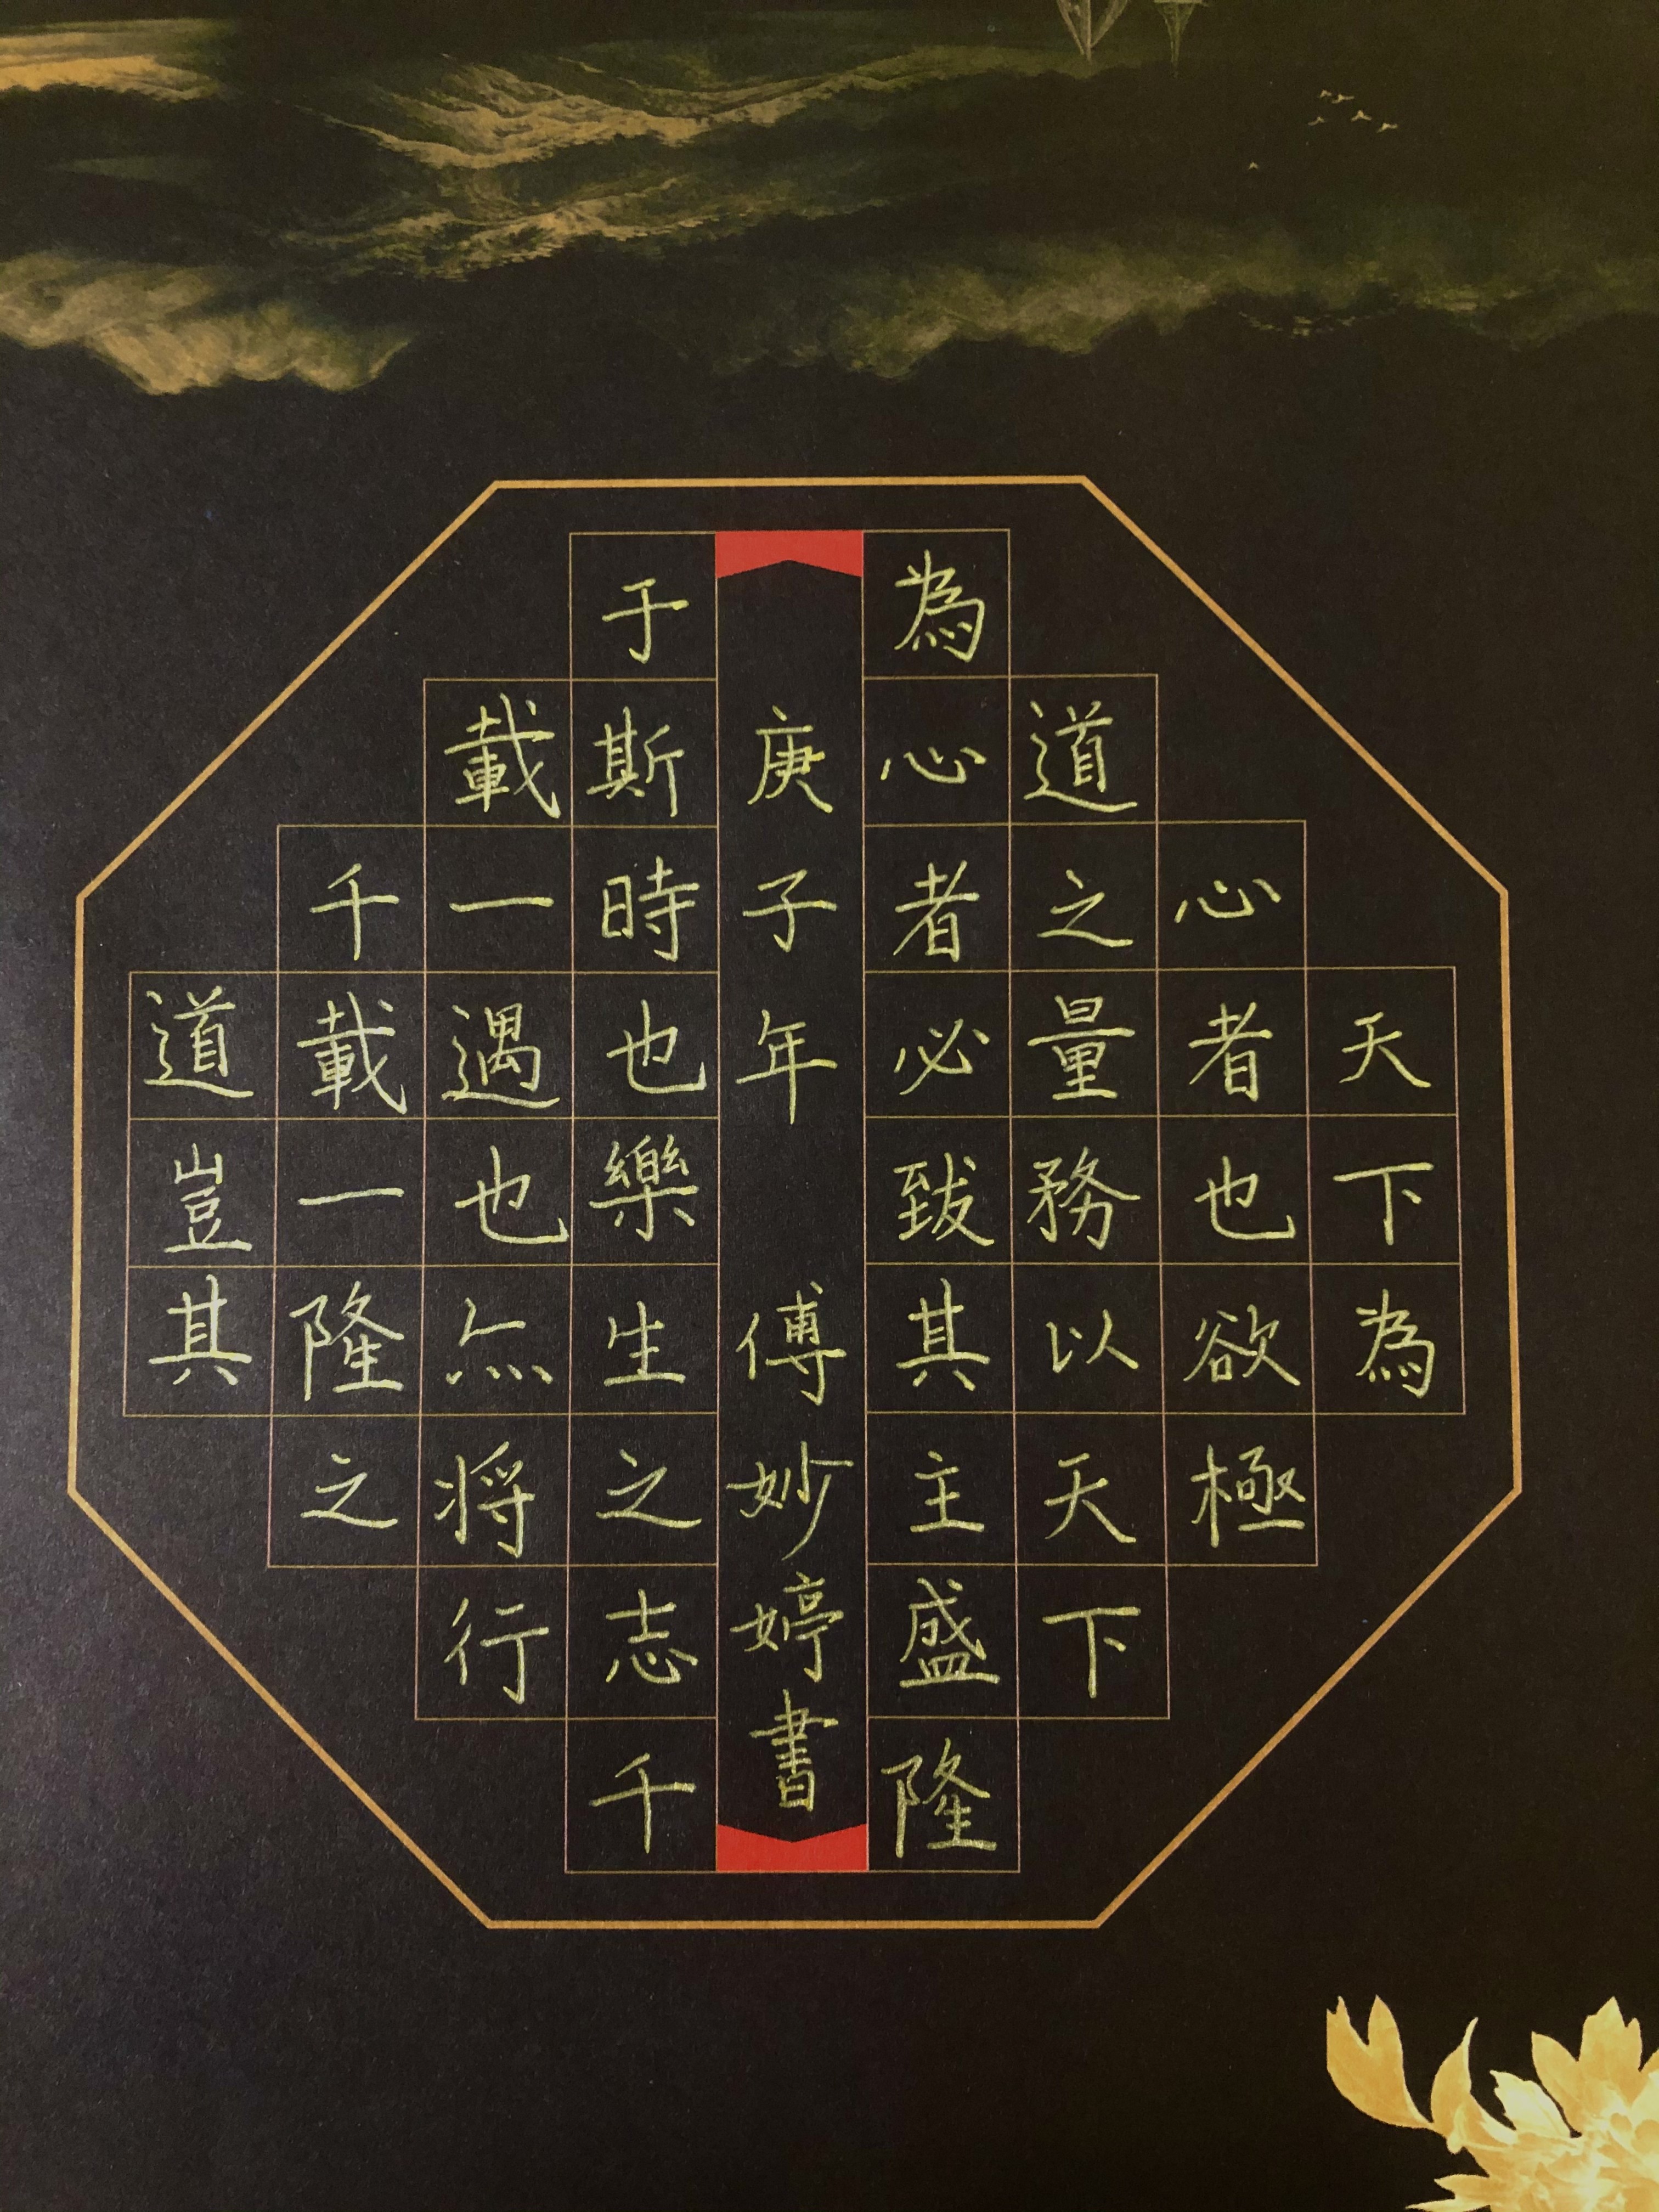 天下為
心者也欲極
道之量務以天下
為心者必致其主盛隆
庚子年 傅妙婷書
于斯時也樂生之志千
載一遇也亦將行
千載一隆之
道豈其